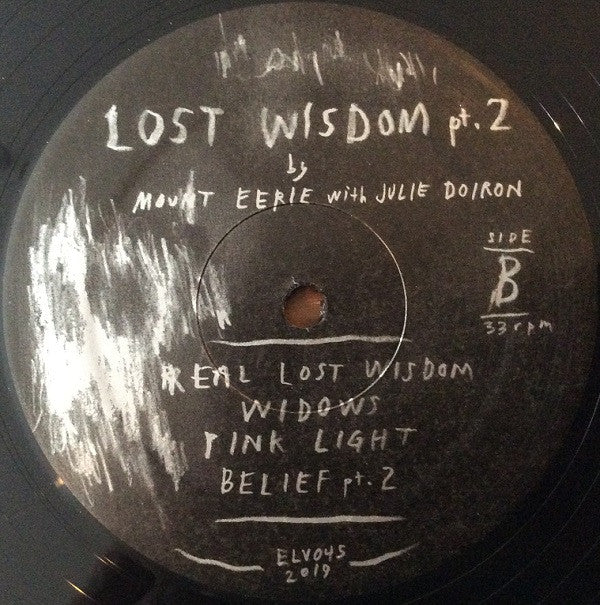 LOST WISDOM pt. 2
by
MOUNT EERIE with JULIE DOIRON
SIDE
B
33 rpm
REAL LOST WISDOM
WIDOWS
PINK LIGHT
BELIEF pt. 2
ELV045
2019